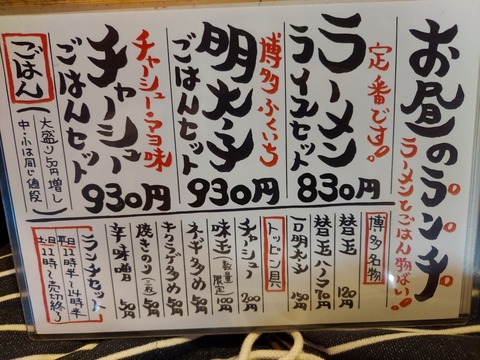 お昼のランチ
ラーメンとごはん物ない!
定番です。
ラーメン
ライスセット
830円
博多ふくいち
明太子
ごはんセット
930円
チャーシュー・マヨ味
チャーシュー
ごはんセット
930円
ごはん
大盛り50円増し
中・小は同じ値段
博多名物
替玉 120円
替玉ハーフ 70円
一口明太子 150円
トッピン具
チャーシュー 200円
味玉(数量限定) 100円
ネギ多め 50円
キクラゲ多め 50円
焼きのり(三枚) 50円
辛味噌 50円
ランチセット
平日11時半〜14時半
土日11時〜売切終了